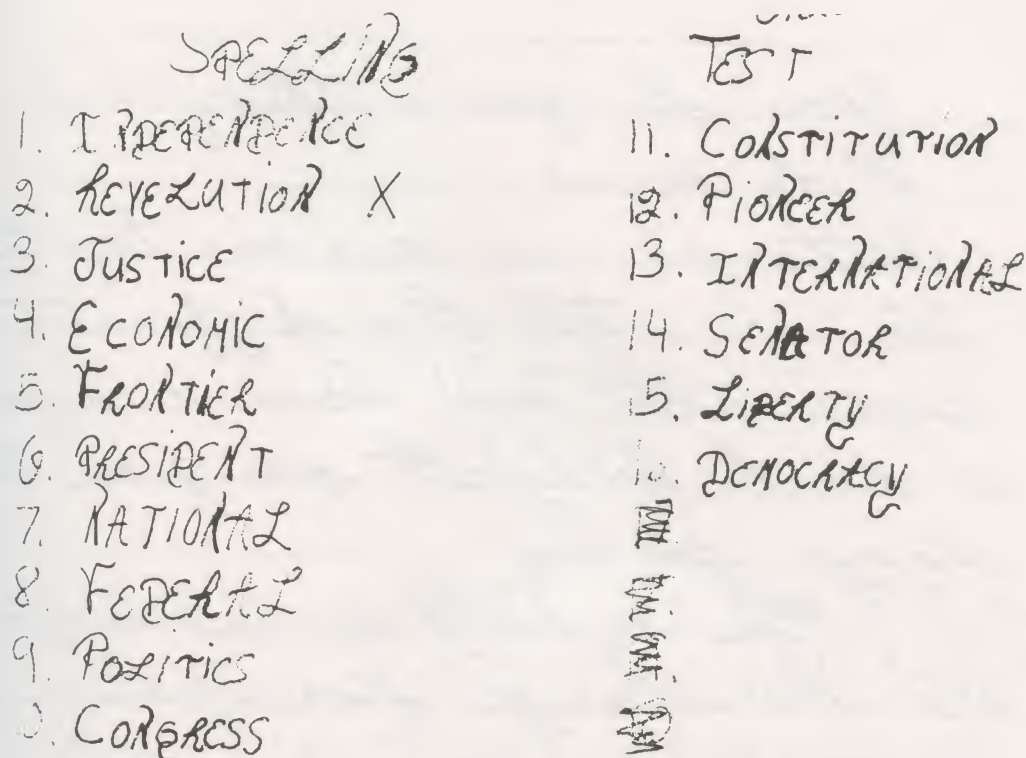 SPELLING
1. INDEPENDENCE
2. REVELUTION X
3. JUSTICE
4. ECONOMIC
5. FRONTIER
6. PRESIDENT
7. NATIONAL
8. FEDERAL
9. POLITICS
CONGRESS
TEST
11. CONSTITUTION
12. PIONEER
13. INTERNATIONAL
14. SENATOR
15. LIBERTY
16. DEMOCRACY